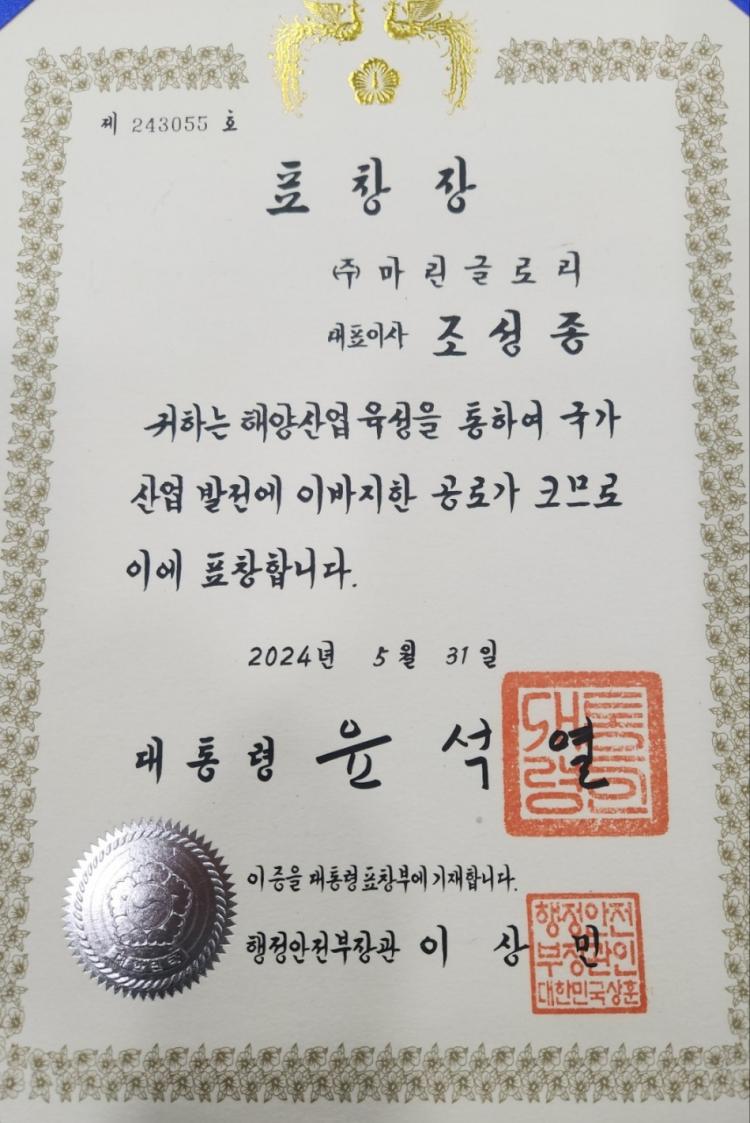 제 243055 호
표창장
(주)마린글로리
대표이사 조성종
귀하는 해양산업 육성을 통하여 국가
산업 발전에 이바지한 공로가 크므로
이에 표창합니다.
2024년 5월 31일
대통령 윤석열
대통령인
이 증을 대통령표창부에 기재합니다.
행정안전부장관 이상민
행정안전
부장관인
대한민국상훈